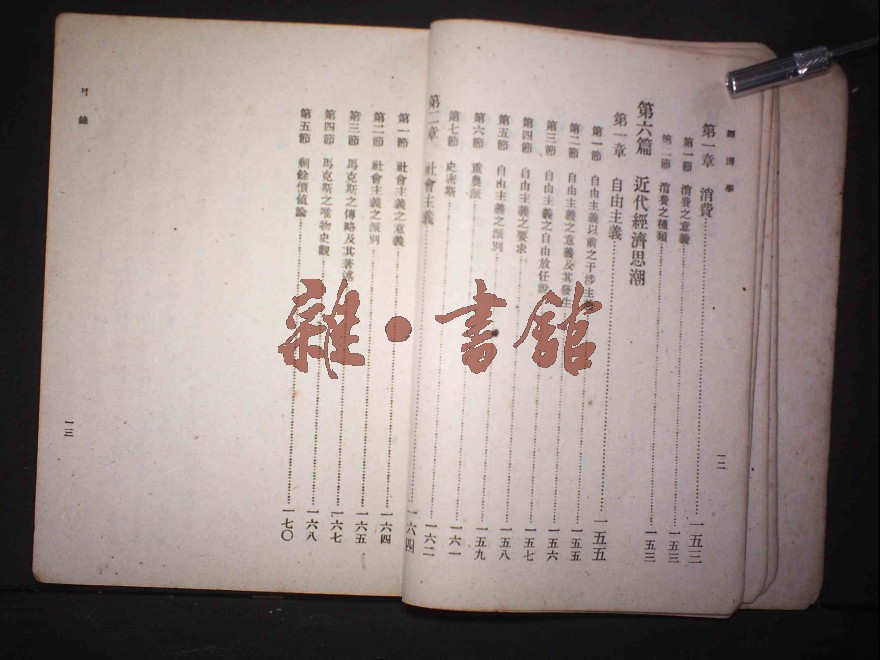 經濟學
第一章 消費 一五三
第一節 消費之意義 一五三
第二節 消費之種類 一五三
第六篇 近代經濟思潮
第一章 自由主義 一五五
第一節 自由主義以前之干涉主義 一五五
第二節 自由主義之意義及其發生 一五六
第三節 自由主義之自由放任說 一五七
第四節 自由主義之要求 一五八
第五節 自由主義之派別 一五九
第六節 重農派 一六一
第七節 史密斯 一六二
第二章 社會主義 一六四
一二
第一節 社會主義之意義 一六四
第二節 社會主義之派別 一六五
第三節 馬克斯之傳略及其著述 一六七
第四節 馬克斯之唯物史觀 一六八
第五節 剩餘價值論 一七〇
目錄
一三
雜·書館